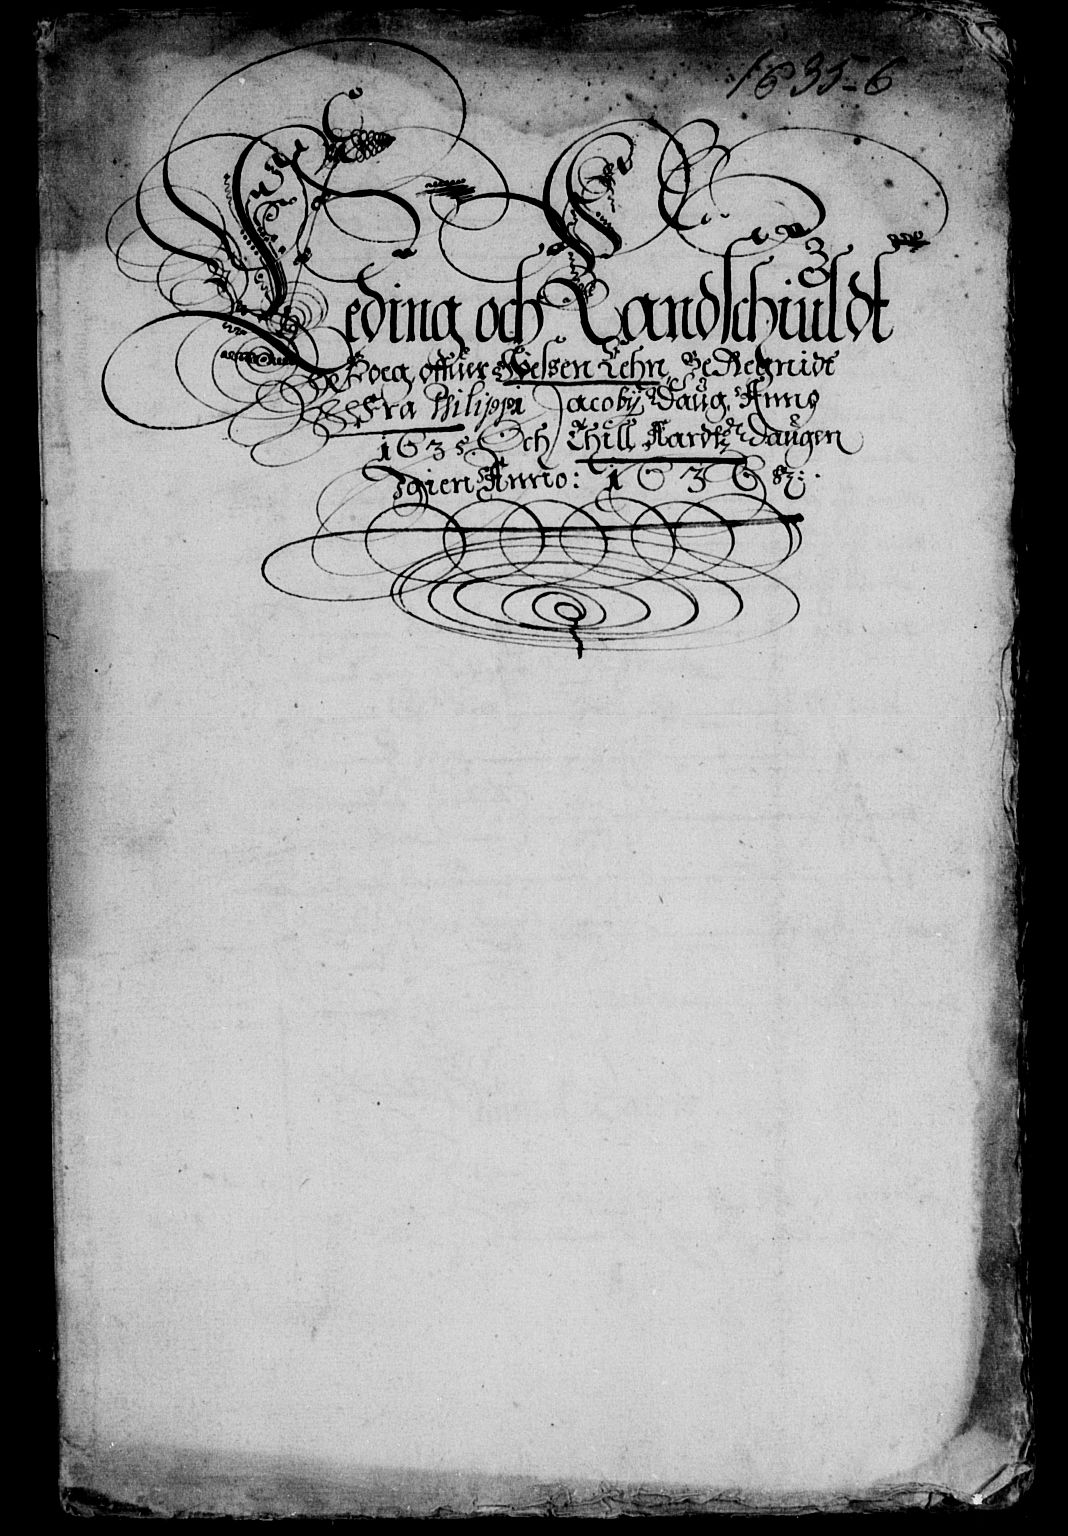 1635-6
Leding och Landschiuldt
Boeg offuer Nessen Lehn BeRegnidt
Fra Philippi Jacobij daug. Anno
1635. Och Thill Aardtz daugen
Igien Anno: 1636 &c:.